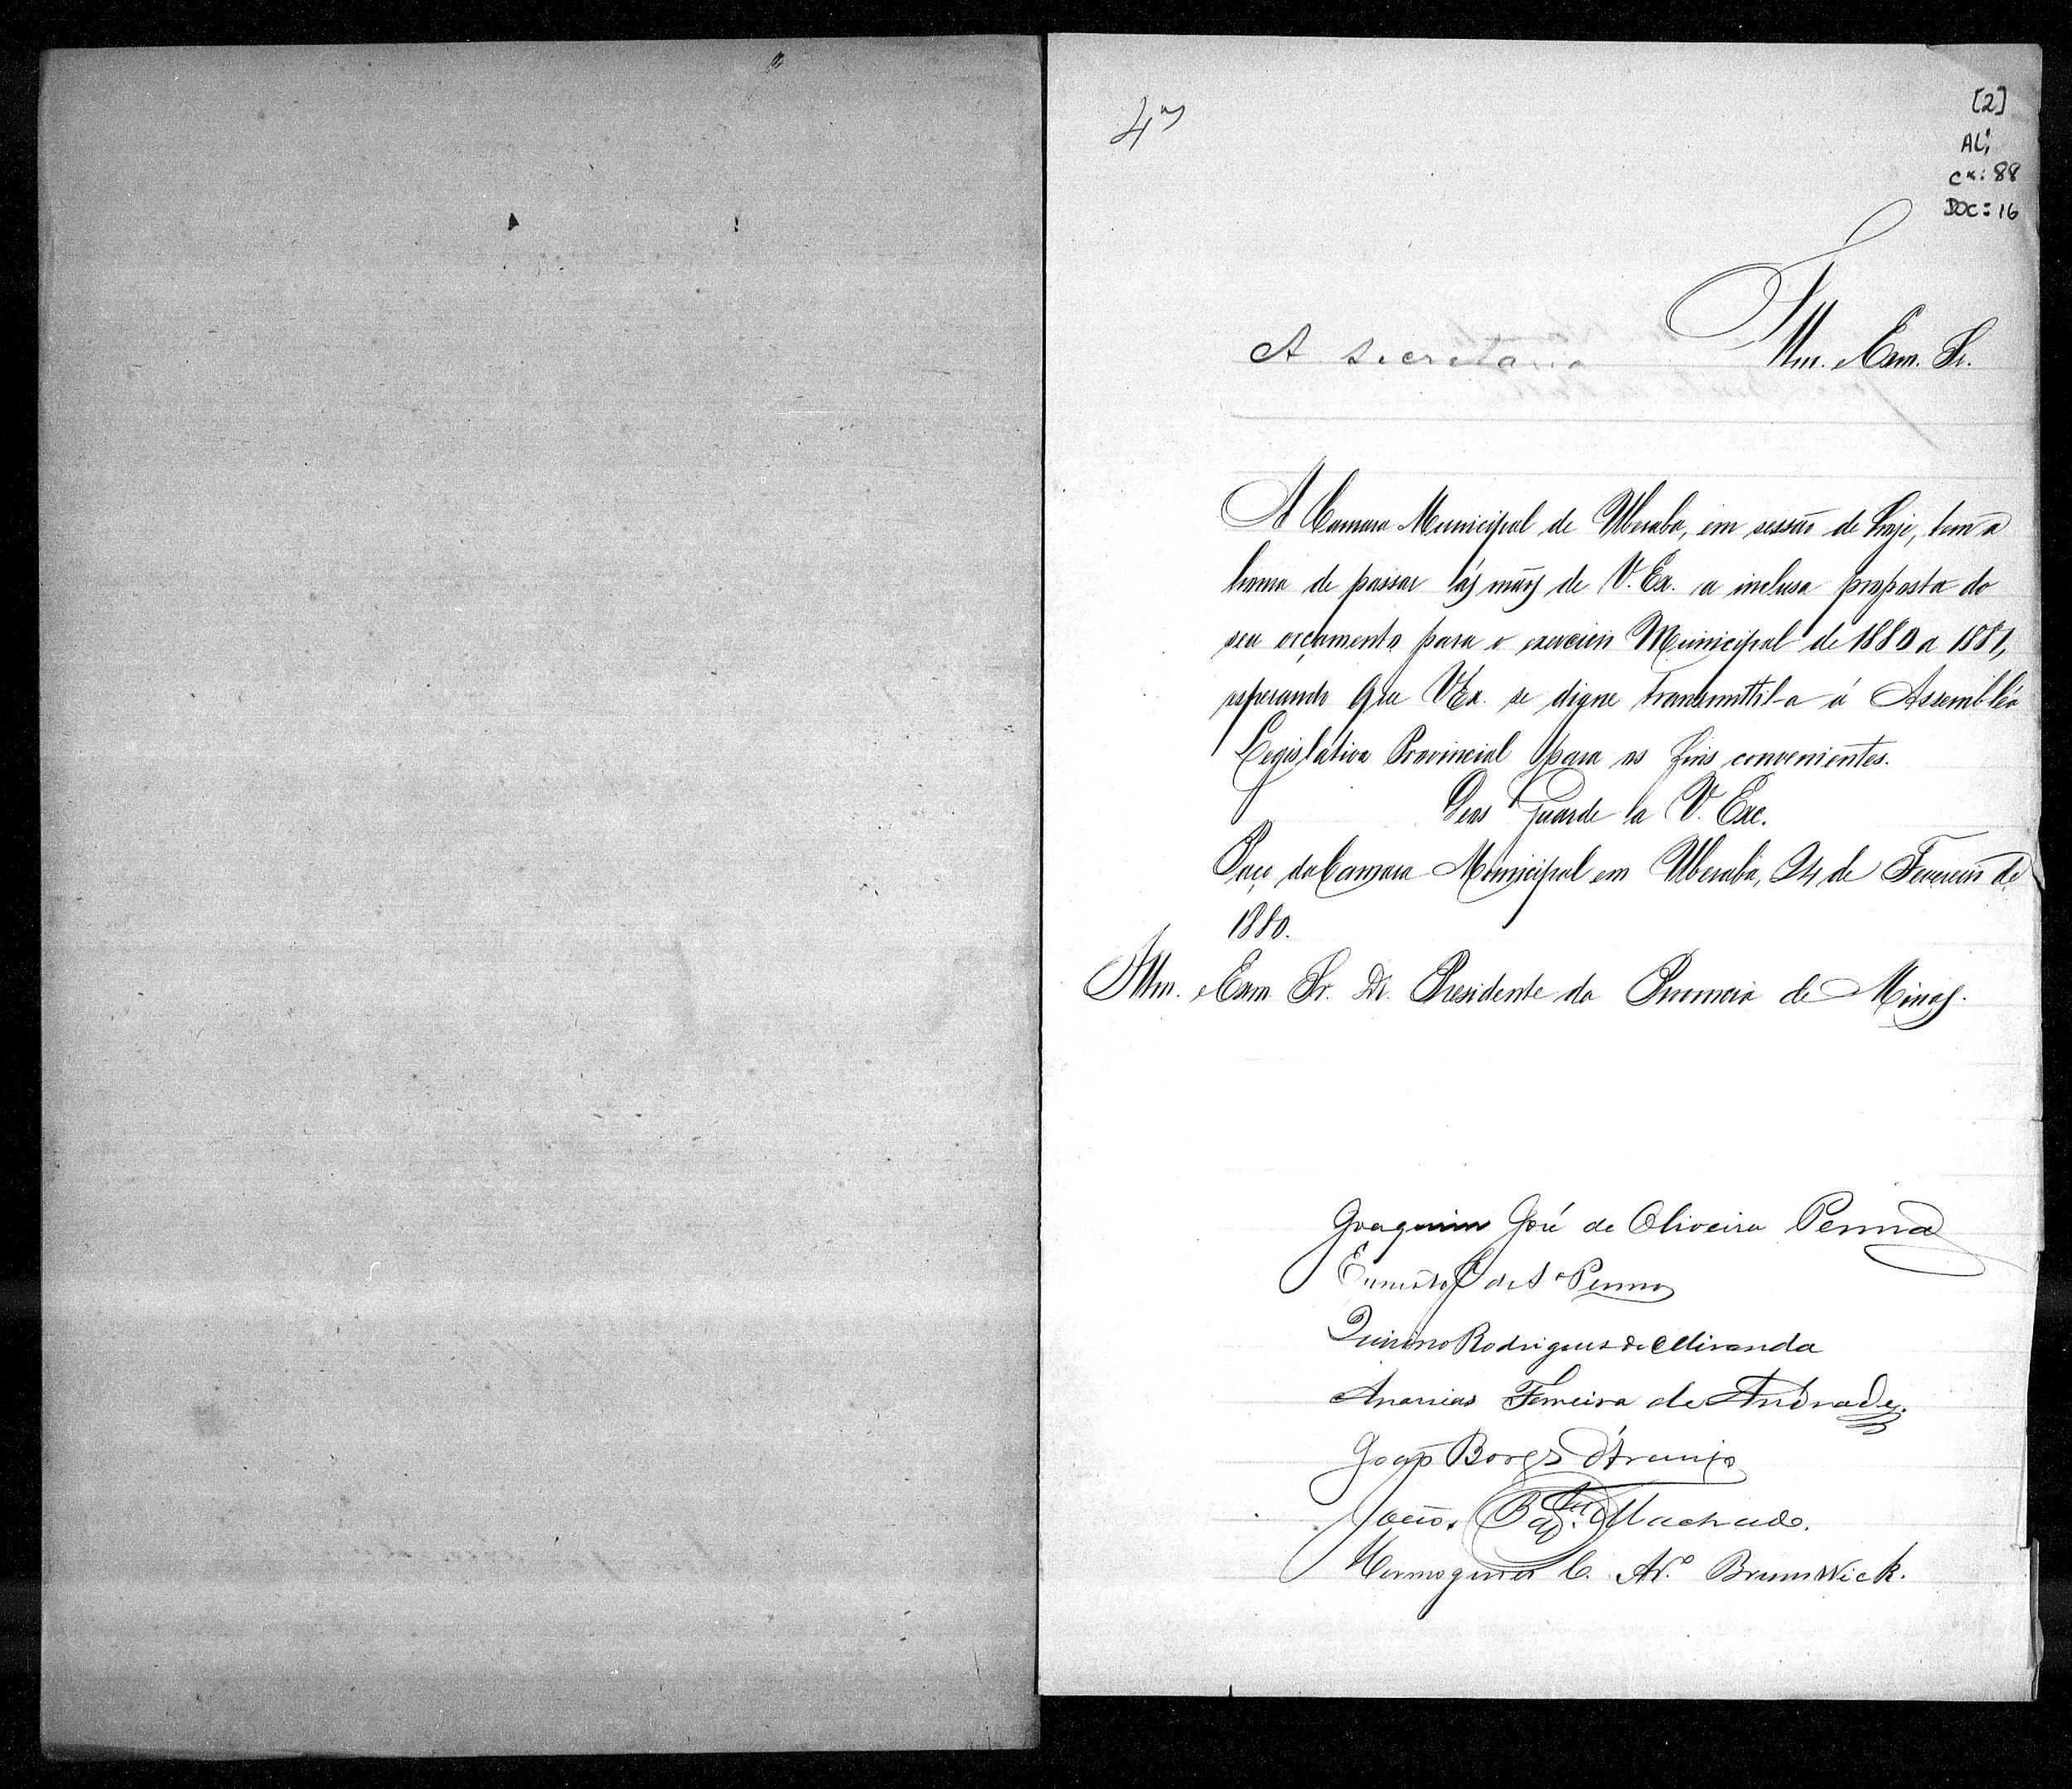 4ª
[2]
AL;
cx: 88
DOC: 16
A secretaria
Illm. Exm. Sr.
A Camara Municipal de Uberaba, em sessão de hoje, tem a
honra de passar ás mãos de V. Ex. a inclusa proposta do
seu orçamento para o exercicio Municipal de 1880 a 1881,
esperando que V Ex. se digne transmittil-a á Assembléa
Legislativa Provincial para os fins convenientes.
Deos Guarde a V. Exc.
Paço da Camara Municipal em Uberaba, 24 de Fevereiro de
1880.
Illm. Exm Sr. Dr. Presidente da Provincia de Minas.
Joaquim José de Oliveira Penna
Penna
Quirino Rodrigues de Miranda
Ananias Ferreira de Andrade.
João Borges d'Araujo
João Bapta. Machado.
Hermogenes C. Ar.º Brunswick.